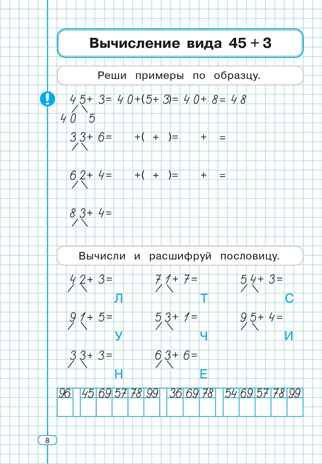 Вычисление вида 45 + 3
Реши примеры по образцу.
! 45+ 3= 40+(5+3)= 40+ 8= 48
40 5
33+ 6= +( + )= + =
62+ 4= +( + )= + =
83+ 4=
Вычисли и расшифруй пословицу.
42+ 3= 71+ 7= 54+ 3=
Л Т С
91+ 5= 53+ 1= 95+ 4=
У Ч И
33+ 3= 63+ 6=
Н Е
96 45 69 57 78 99 36 69 78 54 69 57 78 99
8